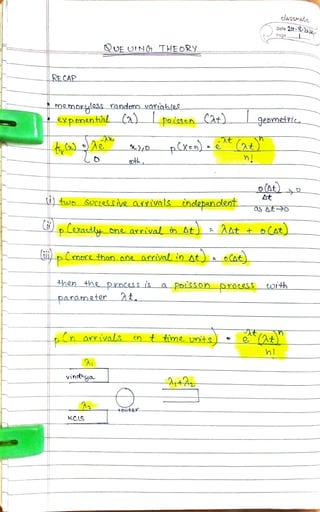 classmate
Date
Page 1
QUEUING THEORY
RECAP
• memoryless random variables
• exponential (λ) | poisson (λt) | geometric.
fₓ(x) = { λe^-λx x>,0 p(x=n) = e^-λt (λt)^n / n!
0 oth.
(i) two successive arrivals independent o(Δt)/Δt → 0 as Δt→0
(ii) p(exactly one arrival in Δt) = λΔt + o(Δt)
(iii) p(more than one arrival in Δt) = o(Δt)
then the process is a poisson process with
parameter λt.
p(n arrivals in t time units) = e^-λt (λt)^n / n!
λ₁
vindhya λ₁+λ₂
λ₂ router
KCIS